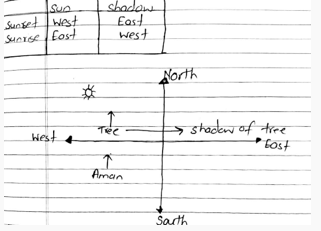 Sun shadow
Sunset West East
Sunrise East West
North
Tree shadow of tree
West East
Aman
South